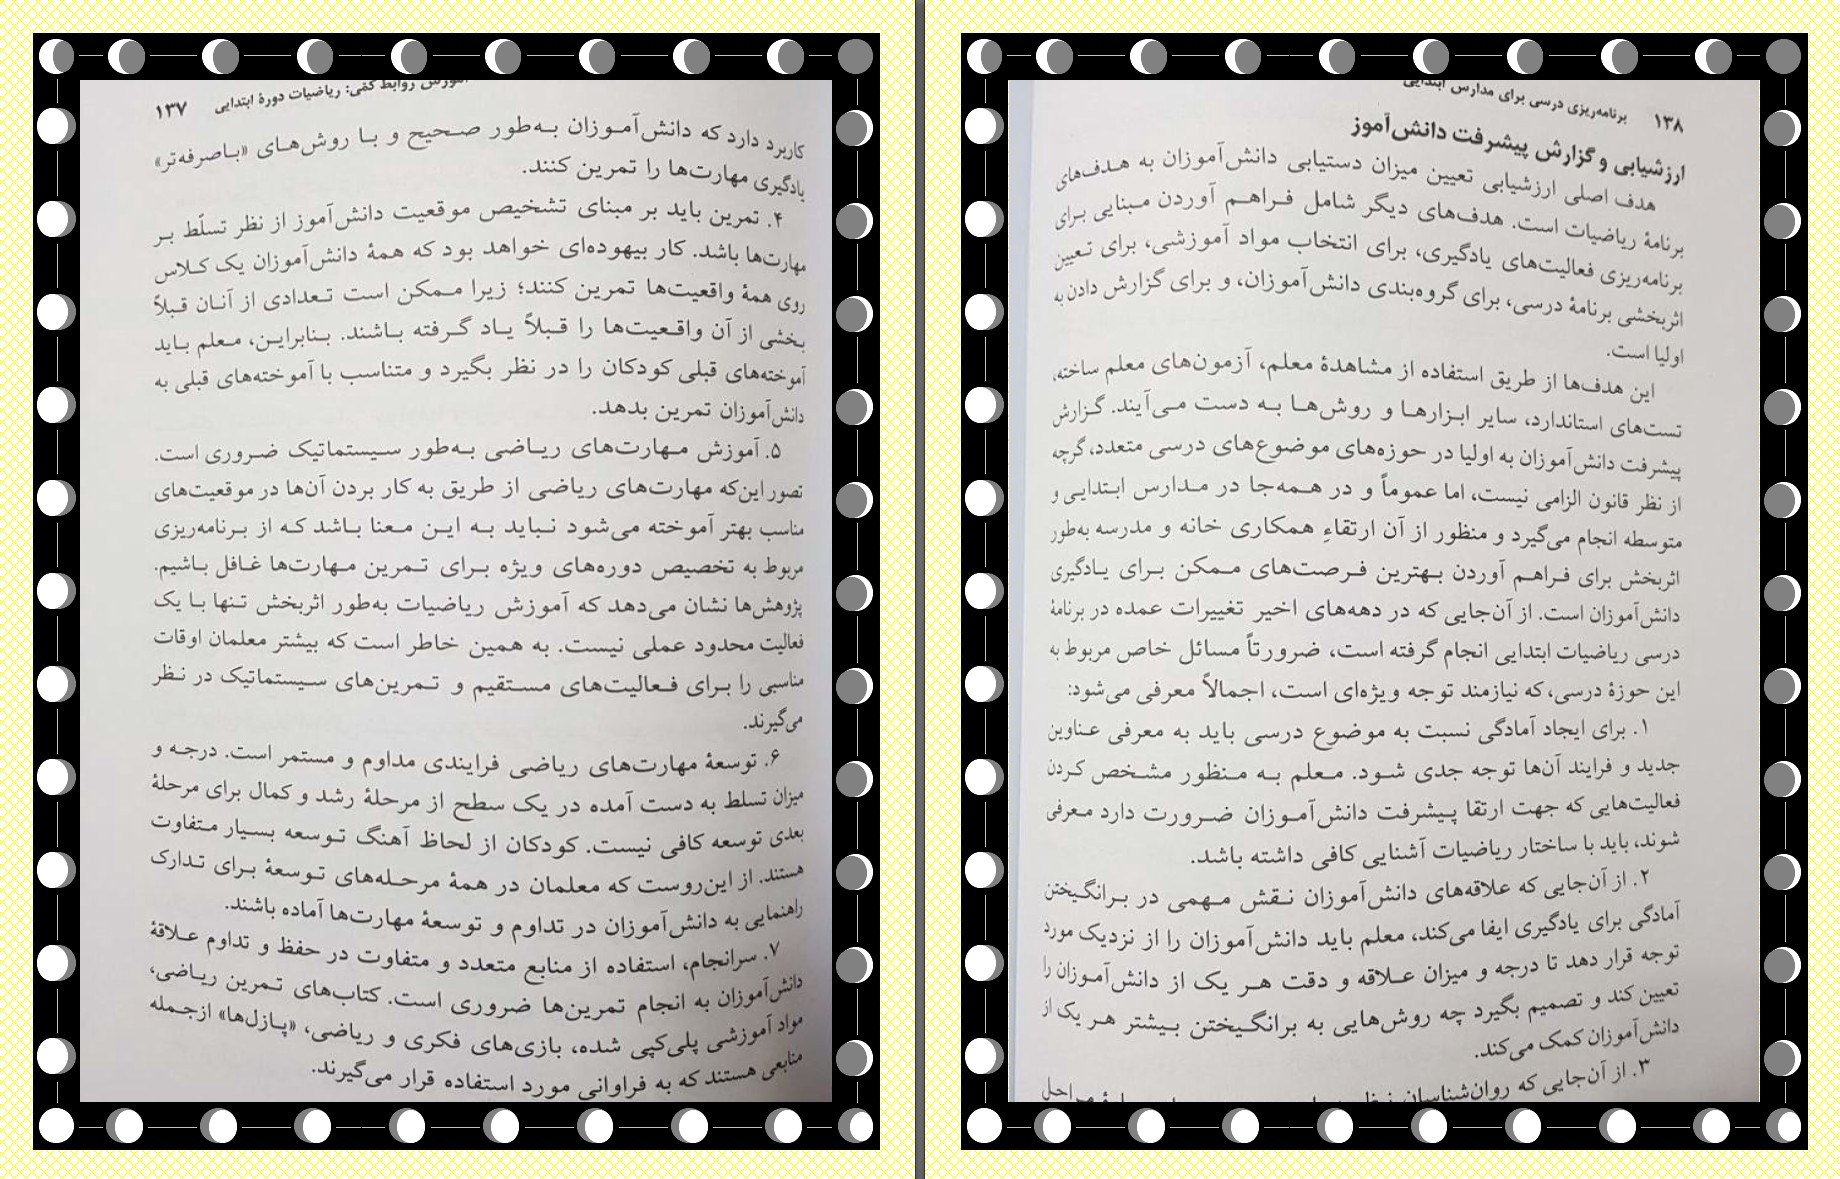 آموزش روابط کمّی: ریاضیات دورهٔ ابتدایی ۱۳۷
کاربرد دارد که دانش‌آموزان به‌طور صحیح و با روش‌های «باصرفه‌تر»
یادگیری مهارت‌ها را تمرین کنند.
۴. تمرین باید بر مبنای تشخیص موقعیت دانش‌آموز از نظر تسلّط بر
مهارت‌ها باشد. کار بیهوده‌ای خواهد بود که همهٔ دانش‌آموزان یک کلاس
روی همهٔ واقعیت‌ها تمرین کنند؛ زیرا ممکن است تعدادی از آنان قبلاً
بخشی از آن واقعیت‌ها را قبلاً یاد گرفته باشند. بنابراین، معلم باید
آموخته‌های قبلی کودکان را در نظر بگیرد و متناسب با آموخته‌های قبلی به
دانش‌آموزان تمرین بدهد.
۵. آموزش مهارت‌های ریاضی به‌طور سیستماتیک ضروری است.
تصور این‌که مهارت‌های ریاضی از طریق به کار بردن آن‌ها در موقعیت‌های
مناسب بهتر آموخته می‌شود نباید به این معنا باشد که از برنامه‌ریزی
مربوط به تخصیص دوره‌های ویژه برای تمرین مهارت‌ها غافل باشیم.
پژوهش‌ها نشان می‌دهد که آموزش ریاضیات به‌طور اثربخش تنها با یک
فعالیت محدود عملی نیست. به همین خاطر است که بیشتر معلمان اوقات
مناسبی را برای فعالیت‌های مستقیم و تمرین‌های سیستماتیک در نظر
می‌گیرند.
۶. توسعهٔ مهارت‌های ریاضی فرایندی مداوم و مستمر است. درجه و
میزان تسلط به دست آمده در یک سطح از مرحلهٔ رشد و کمال برای مرحلهٔ
بعدی توسعه کافی نیست. کودکان از لحاظ آهنگ توسعه بسیار متفاوت
هستند. از این‌روست که معلمان در همهٔ مرحله‌های توسعهٔ برای تدارک
راهنمایی به دانش‌آموزان در تداوم و توسعهٔ مهارت‌ها آماده باشند.
۷. سرانجام، استفاده از منابع متعدد و متفاوت در حفظ و تداوم علاقهٔ
دانش‌آموزان به انجام تمرین‌ها ضروری است. کتاب‌های تمرین ریاضی،
مواد آموزشی پلی‌کپی شده، بازی‌های فکری و ریاضی، «پازل‌ها» ازجمله
منابعی هستند که به فراوانی مورد استفاده قرار می‌گیرند.
۱۳۸ برنامه‌ریزی درسی برای مدارس ابتدایی
ارزشیابی و گزارش پیشرفت دانش‌آموز
هدف اصلی ارزشیابی تعیین میزان دستیابی دانش‌آموزان به هدف‌های
برنامهٔ ریاضیات است. هدف‌های دیگر شامل فراهم آوردن مبنایی برای
برنامه‌ریزی فعالیت‌های یادگیری، برای انتخاب مواد آموزشی، برای تعیین
اثربخشی برنامهٔ درسی، برای گروه‌بندی دانش‌آموزان، و برای گزارش دادن به
اولیا است.
این هدف‌ها از طریق استفاده از مشاهدهٔ معلم، آزمون‌های معلم ساخته،
تست‌های استاندارد، سایر ابزارها و روش‌ها به دست می‌آیند. گزارش
پیشرفت دانش‌آموزان به اولیا در حوزه‌های موضوع‌های درسی متعدد، گرچه
از نظر قانون الزامی نیست، اما عموماً و در همه‌جا در مدارس ابتدایی و
متوسطه انجام می‌گیرد و منظور از آن ارتقاءِ همکاری خانه و مدرسه به‌طور
اثربخش برای فراهم آوردن بهترین فرصت‌های ممکن برای یادگیری
دانش‌آموزان است. از آن‌جایی که در دهه‌های اخیر تغییرات عمده در برنامهٔ
درسی ریاضیات ابتدایی انجام گرفته است، ضرورتاً مسائل خاص مربوط به
این حوزهٔ درسی، که نیازمند توجه ویژه‌ای است، اجمالاً معرفی می‌شود:
۱. برای ایجاد آمادگی نسبت به موضوع درسی باید به معرفی عناوین
جدید و فرایند آن‌ها توجه جدی شود. معلم به منظور مشخص کردن
فعالیت‌هایی که جهت ارتقا پیشرفت دانش‌آموزان ضرورت دارد معرفی
شوند، باید با ساختار ریاضیات آشنایی کافی داشته باشد.
۲. از آن‌جایی که علاقه‌های دانش‌آموزان نقش مهمی در برانگیختن
آمادگی برای یادگیری ایفا می‌کند، معلم باید دانش‌آموزان را از نزدیک مورد
توجه قرار دهد تا درجه و میزان علاقه و دقت هر یک از دانش‌آموزان را
تعیین کند و تصمیم بگیرد چه روش‌هایی به برانگیختن بیشتر هر یک از
دانش‌آموزان کمک می‌کند.
۳. از آن‌جایی که روان‌شناسان مراحل